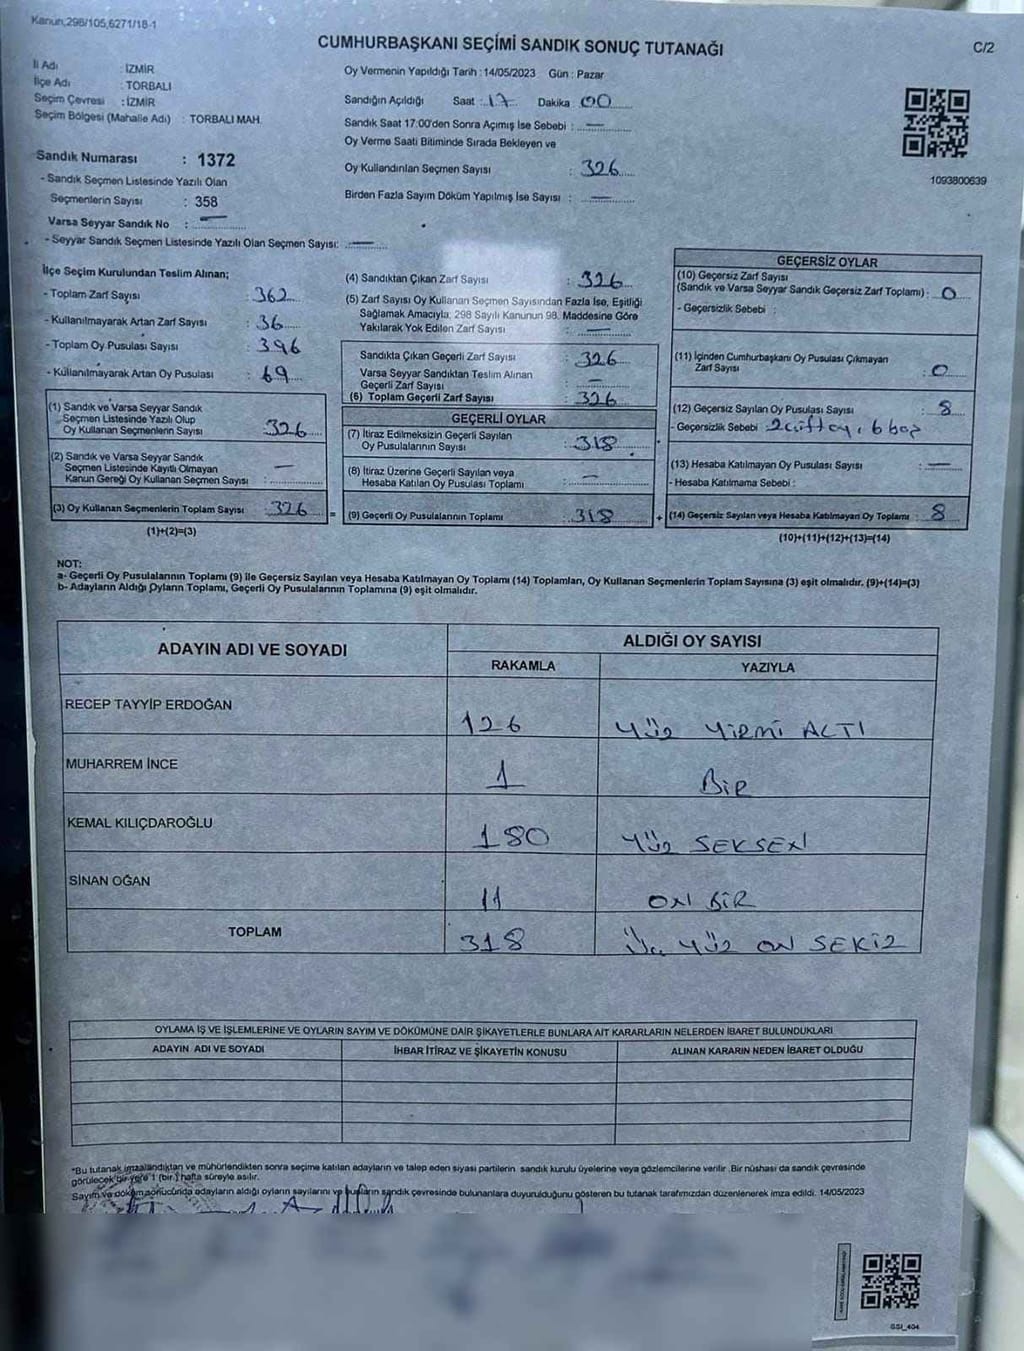 Kanun,298/105,6271/18-1
CUMHURBAŞKANI SEÇİMİ SANDIK SONUÇ TUTANAĞI
C/2
İl Adı : İZMİR
İlçe Adı : TORBALI
Seçim Çevresi : İZMİR
Seçim Bölgesi (Mahalle Adı) : TORBALI MAH.
Sandık Numarası : 1372
- Sandık Seçmen Listesinde Yazılı Olan
Seçmenlerin Sayısı : 358
Varsa Seyyar Sandık No : —
- Seyyar Sandık Seçmen Listesinde Yazılı Olan Seçmen Sayısı: —
Oy Vermenin Yapıldığı Tarih : 14/05/2023 Gün : Pazar
Sandığın Açıldığı Saat : 17 Dakika : 00
Sandık Saat 17:00'den Sonra Açımış İse Sebebi : —
Oy Verme Saati Bitiminde Sırada Bekleyen ve
Oy Kullandırılan Seçmen Sayısı : 326
Birden Fazla Sayım Döküm Yapılmış İse Sayısı : —
1093800639
İlçe Seçim Kurulundan Teslim Alınan;
- Toplam Zarf Sayısı : 362
- Kullanılmayarak Artan Zarf Sayısı : 36
- Toplam Oy Pusulası Sayısı : 396
- Kullanılmayarak Artan Oy Pusulası : 69
(1) Sandık ve Varsa Seyyar Sandık
Seçmen Listesinde Yazılı Olup
Oy Kullanan Seçmenlerin Sayısı : 326
(2) Sandık ve Varsa Seyyar Sandık
Seçmen Listesinde Kayıtlı Olmayan
Kanun Gereği Oy Kullanan Seçmen Sayısı : —
(3) Oy Kullanan Seçmenlerin Toplam Sayısı : 326
(1)+(2)=(3)
=
(4) Sandıktan Çıkan Zarf Sayısı : 326
(5) Zarf Sayısı Oy Kullanan Seçmen Sayısından Fazla İse, Eşitliği
Sağlamak Amacıyla, 298 Sayılı Kanunun 98. Maddesine Göre
Yakılarak Yok Edilen Zarf Sayısı : —
Sandıkta Çıkan Geçerli Zarf Sayısı : 326
Varsa Seyyar Sandıktan Teslim Alınan
Geçerli Zarf Sayısı : —
(6) Toplam Geçerli Zarf Sayısı : 326
GEÇERLİ OYLAR
(7) İtiraz Edilmeksizin Geçerli Sayılan
Oy Pusulalarının Sayısı : 318
(8) İtiraz Üzerine Geçerli Sayılan veya
Hesaba Katılan Oy Pusulası Toplamı : —
(9) Geçerli Oy Pusulalarının Toplamı : 318
+
GEÇERSİZ OYLAR
(10) Geçersiz Zarf Sayısı
(Sandık ve Varsa Seyyar Sandık Geçersiz Zarf Toplamı) : 0
- Geçersizlik Sebebi :
(11) İçinden Cumhurbaşkanı Oy Pusulası Çıkmayan
Zarf Sayısı : 0
(12) Geçersiz Sayılan Oy Pusulası Sayısı : 8
- Geçersizlik Sebebi 2 çift oy, 6 boş
(13) Hesaba Katılmayan Oy Pusulası Sayısı : —
- Hesaba Katılmama Sebebi :
(14) Geçersiz Sayılan veya Hesaba Katılmayan Oy Toplamı : 8
(10)+(11)+(12)+(13)=(14)
NOT:
a- Geçerli Oy Pusulalarının Toplamı (9) ile Geçersiz Sayılan veya Hesaba Katılmayan Oy Toplamı (14) Toplamları, Oy Kullanan Seçmenlerin Toplam Sayısına (3) eşit olmalıdır. (9)+(14)=(3)
b- Adayların Aldığı Oyların Toplamı, Geçerli Oy Pusulalarının Toplamına (9) eşit olmalıdır.
ADAYIN ADI VE SOYADI
ALDIĞI OY SAYISI
RAKAMLA YAZIYLA
RECEP TAYYİP ERDOĞAN 126 YÜZ YİRMİ ALTI
MUHARREM İNCE 1 BİR
KEMAL KILIÇDAROĞLU 180 YÜZ SEKSEN
SİNAN OĞAN 11 ON BİR
TOPLAM 318 ÜÇ YÜZ ON SEKİZ
OYLAMA İŞ VE İŞLEMLERİNE VE OYLARIN SAYIM VE DÖKÜMÜNE DAİR ŞİKAYETLERLE BUNLARA AİT KARARLARIN NELERDEN İBARET BULUNDUKLARI
ADAYIN ADI VE SOYADI İHBAR İTİRAZ VE ŞİKAYETİN KONUSU ALINAN KARARIN NEDEN İBARET OLDUĞU
"Bu tutanak imzalandıktan ve mühürlendikten sonra seçime katılan adayların ve talep eden siyasi partilerin sandık kurulu üyelerine veya gözlemcilerine verilir .Bir nüshası da sandık çevresinde
görülecek bir yere 1 (bir ) hafta süreyle asılır.
Sayım ve döküm sonucunda adayların aldığı oyların sayılarını ve bunların sandık çevresinde bulunanlara duyurulduğunu gösteren bu tutanak tarafımızdan düzenlenerek imza edildi. 14/05/2023
GSI_404